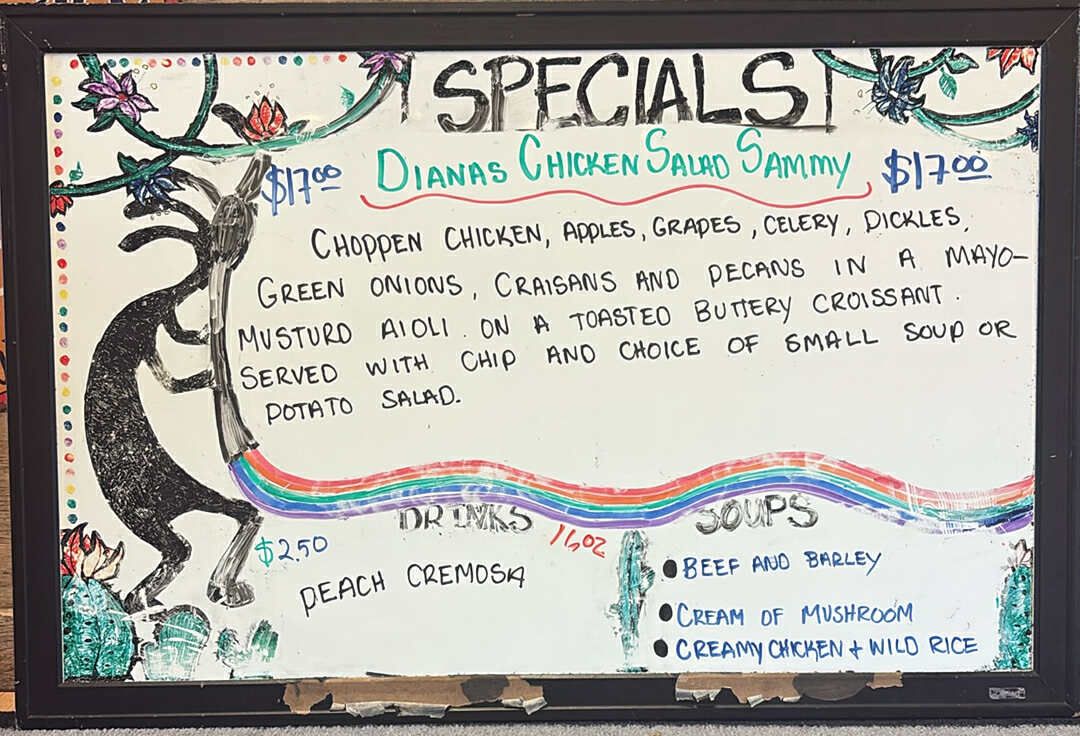 SPECIALS
$17.00 DIANAS CHICKEN SALAD SAMMY $17.00
CHOPPEN CHICKEN, APPLES, GRAPES, CELERY, DICKLES,
GREEN ONIONS, CRAISANS AND PECANS IN A MAYO-
MUSTURD AIOLI. ON A TOASTED BUTTERY CROISSANT.
SERVED WITH CHIP AND CHOICE OF SMALL SOUP OR
POTATO SALAD.
DRINKS
$2.50
16oz
PEACH CREMOSA
SOUPS
• BEEF AND BARLEY
• CREAM OF MUSHROOM
• CREAMY CHICKEN + WILD RICE